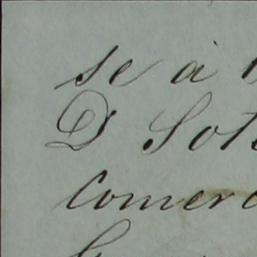 se à
D Sot
comerc